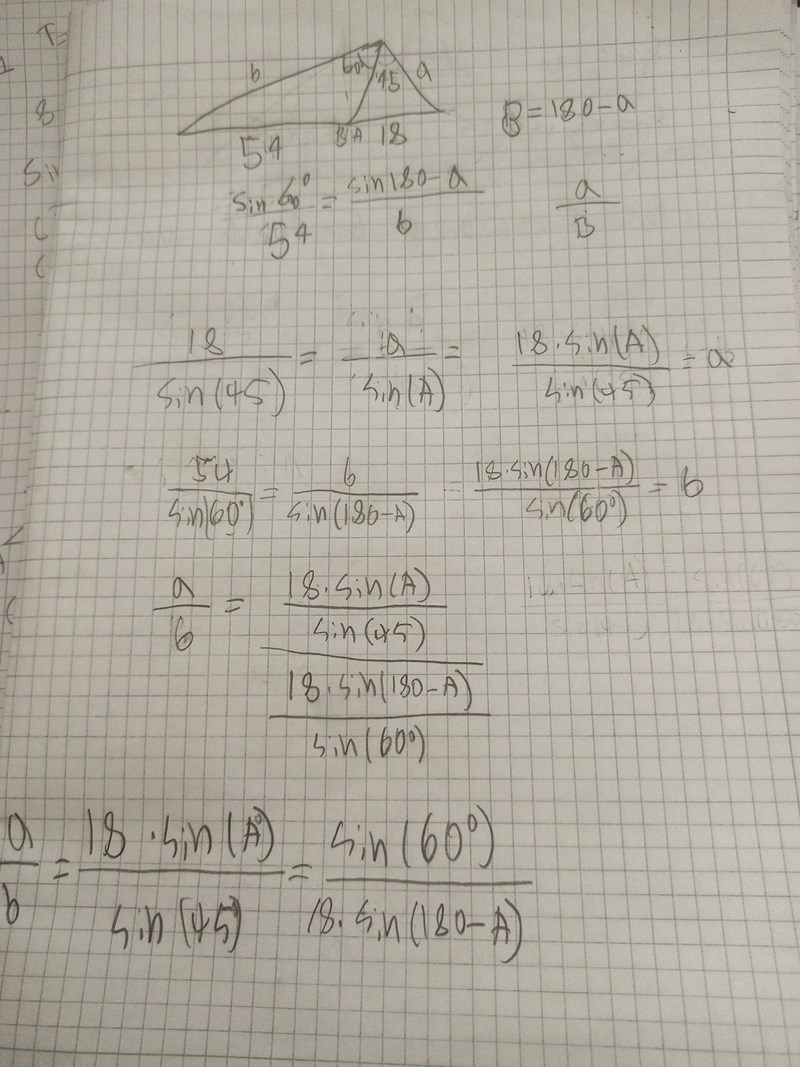 T=
b 60° 45 a
8 B=180-a
54 B A 18
Sin
sin 60° / 54 = sin180-a / b a / B
18 / sin(45) = a / sin(A) = 18·sin(A) / sin(45) = a
54 / sin(60°) = b / sin(180-A) 18·sin(180-A) / sin(60°) = b
a / b = 18·sin(A) / sin(45) / 18·sin(180-A) / sin(60°)
a / b = 18·sin(A) / sin(45) = sin(60°) / 18·sin(180-A)